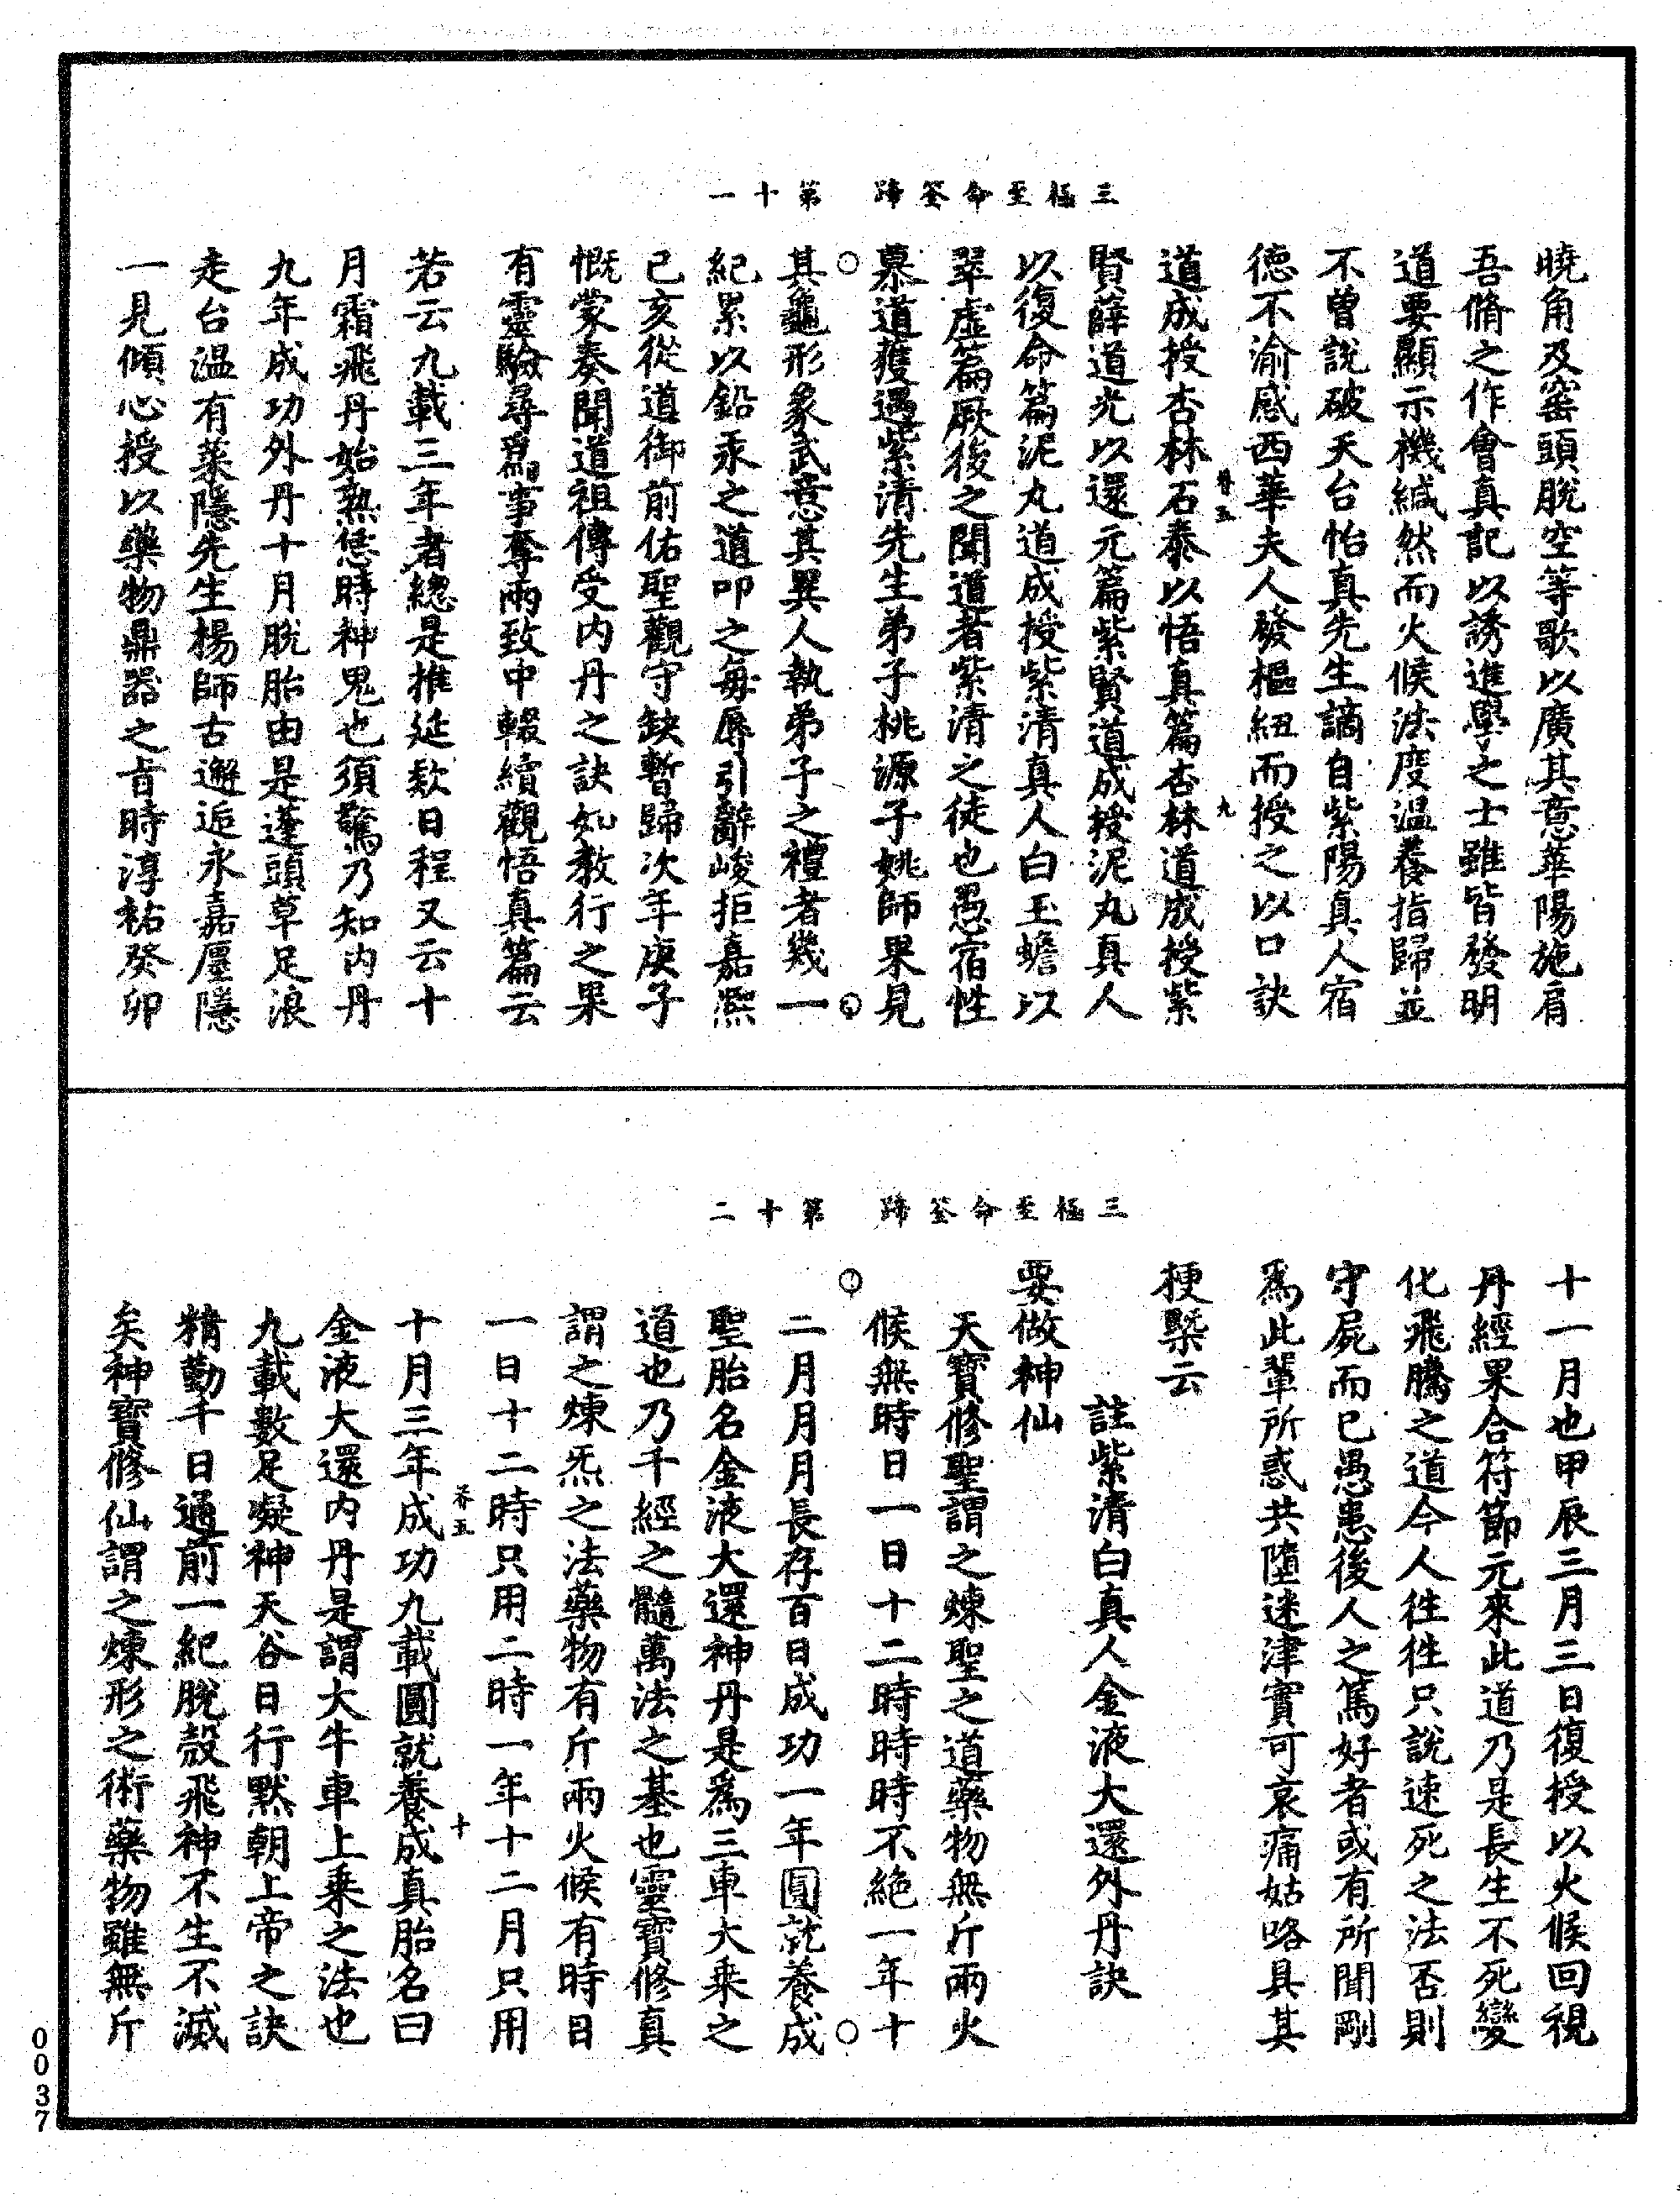 三極至命筌蹄　第十一
曉角及窰頭脫空等歌以廣其意華陽施肩
吾脩之作會真記以誘進學之士雖皆發明
道要顯示機緘然而火候法度溫養指歸並
不曾說破天台怡真先生謫自紫陽真人宿
德不渝感西華夫人發樞紐而授之以口訣
道成授杏林石泰以悟真篇杏林道成授紫
賢薛道光以還元篇紫賢道成授泥丸真人
以復命篇泥丸道成授紫清真人白玉蟾以
翠虛篇厥後之聞道者紫清之徒也愚宿性
慕道獲遇紫清先生弟子桃源子姚師果見
其龜形象武意其異人執弟子之禮者幾一
紀累以鉛汞之道叩之每辱引辭峻拒嘉熙
己亥從道御前佑聖觀守缺暫歸次年庚子
慨蒙奏聞道祖傳受内丹之訣如教行之果
有靈驗尋爲事奪兩致中輟續觀悟真篇云
若云九載三年者總是推延款日程又云十
月霜飛丹始熟恁時神鬼也須驚乃知内丹
九年成功外丹十月脫胎由是蓬頭草足浪
走台溫有菉隱先生楊師古邂逅永嘉廛隱
一見傾心授以藥物鼎器之旨時淳祐癸卯
三極至命筌蹄　第十二
十一月也甲辰三月三日復授以火候回視
丹經果合符節元來此道乃是長生不死變
化飛騰之道今人徃徃只說速死之法否則
守屍而已愚患後人之篤好者或有所聞剛
爲此輩所惑共墮迷津實可哀痛姑略具其
梗槩云
註紫清白真人金液大還外丹訣
要做神仙
天寶修聖謂之煉聖之道藥物無斤兩火
候無時日一日十二時時時不絕一年十
二月月月長存百日成功一年圓就養成
聖胎名金液大還神丹是爲三車大乘之
道也乃千經之髓萬法之基也靈寶修真
謂之煉炁之法藥物有斤兩火候有時日
一日十二時只用二時一年十二月只用
十月三年成功九載圓就養成真胎名曰
金液大還内丹是謂大牛車上乘之法也
九載數足凝神天谷日行默朝上帝之訣
精勤千日通前一紀脫殼飛神不生不滅
矣神寶修仙謂之煉形之術藥物雖無斤
0037